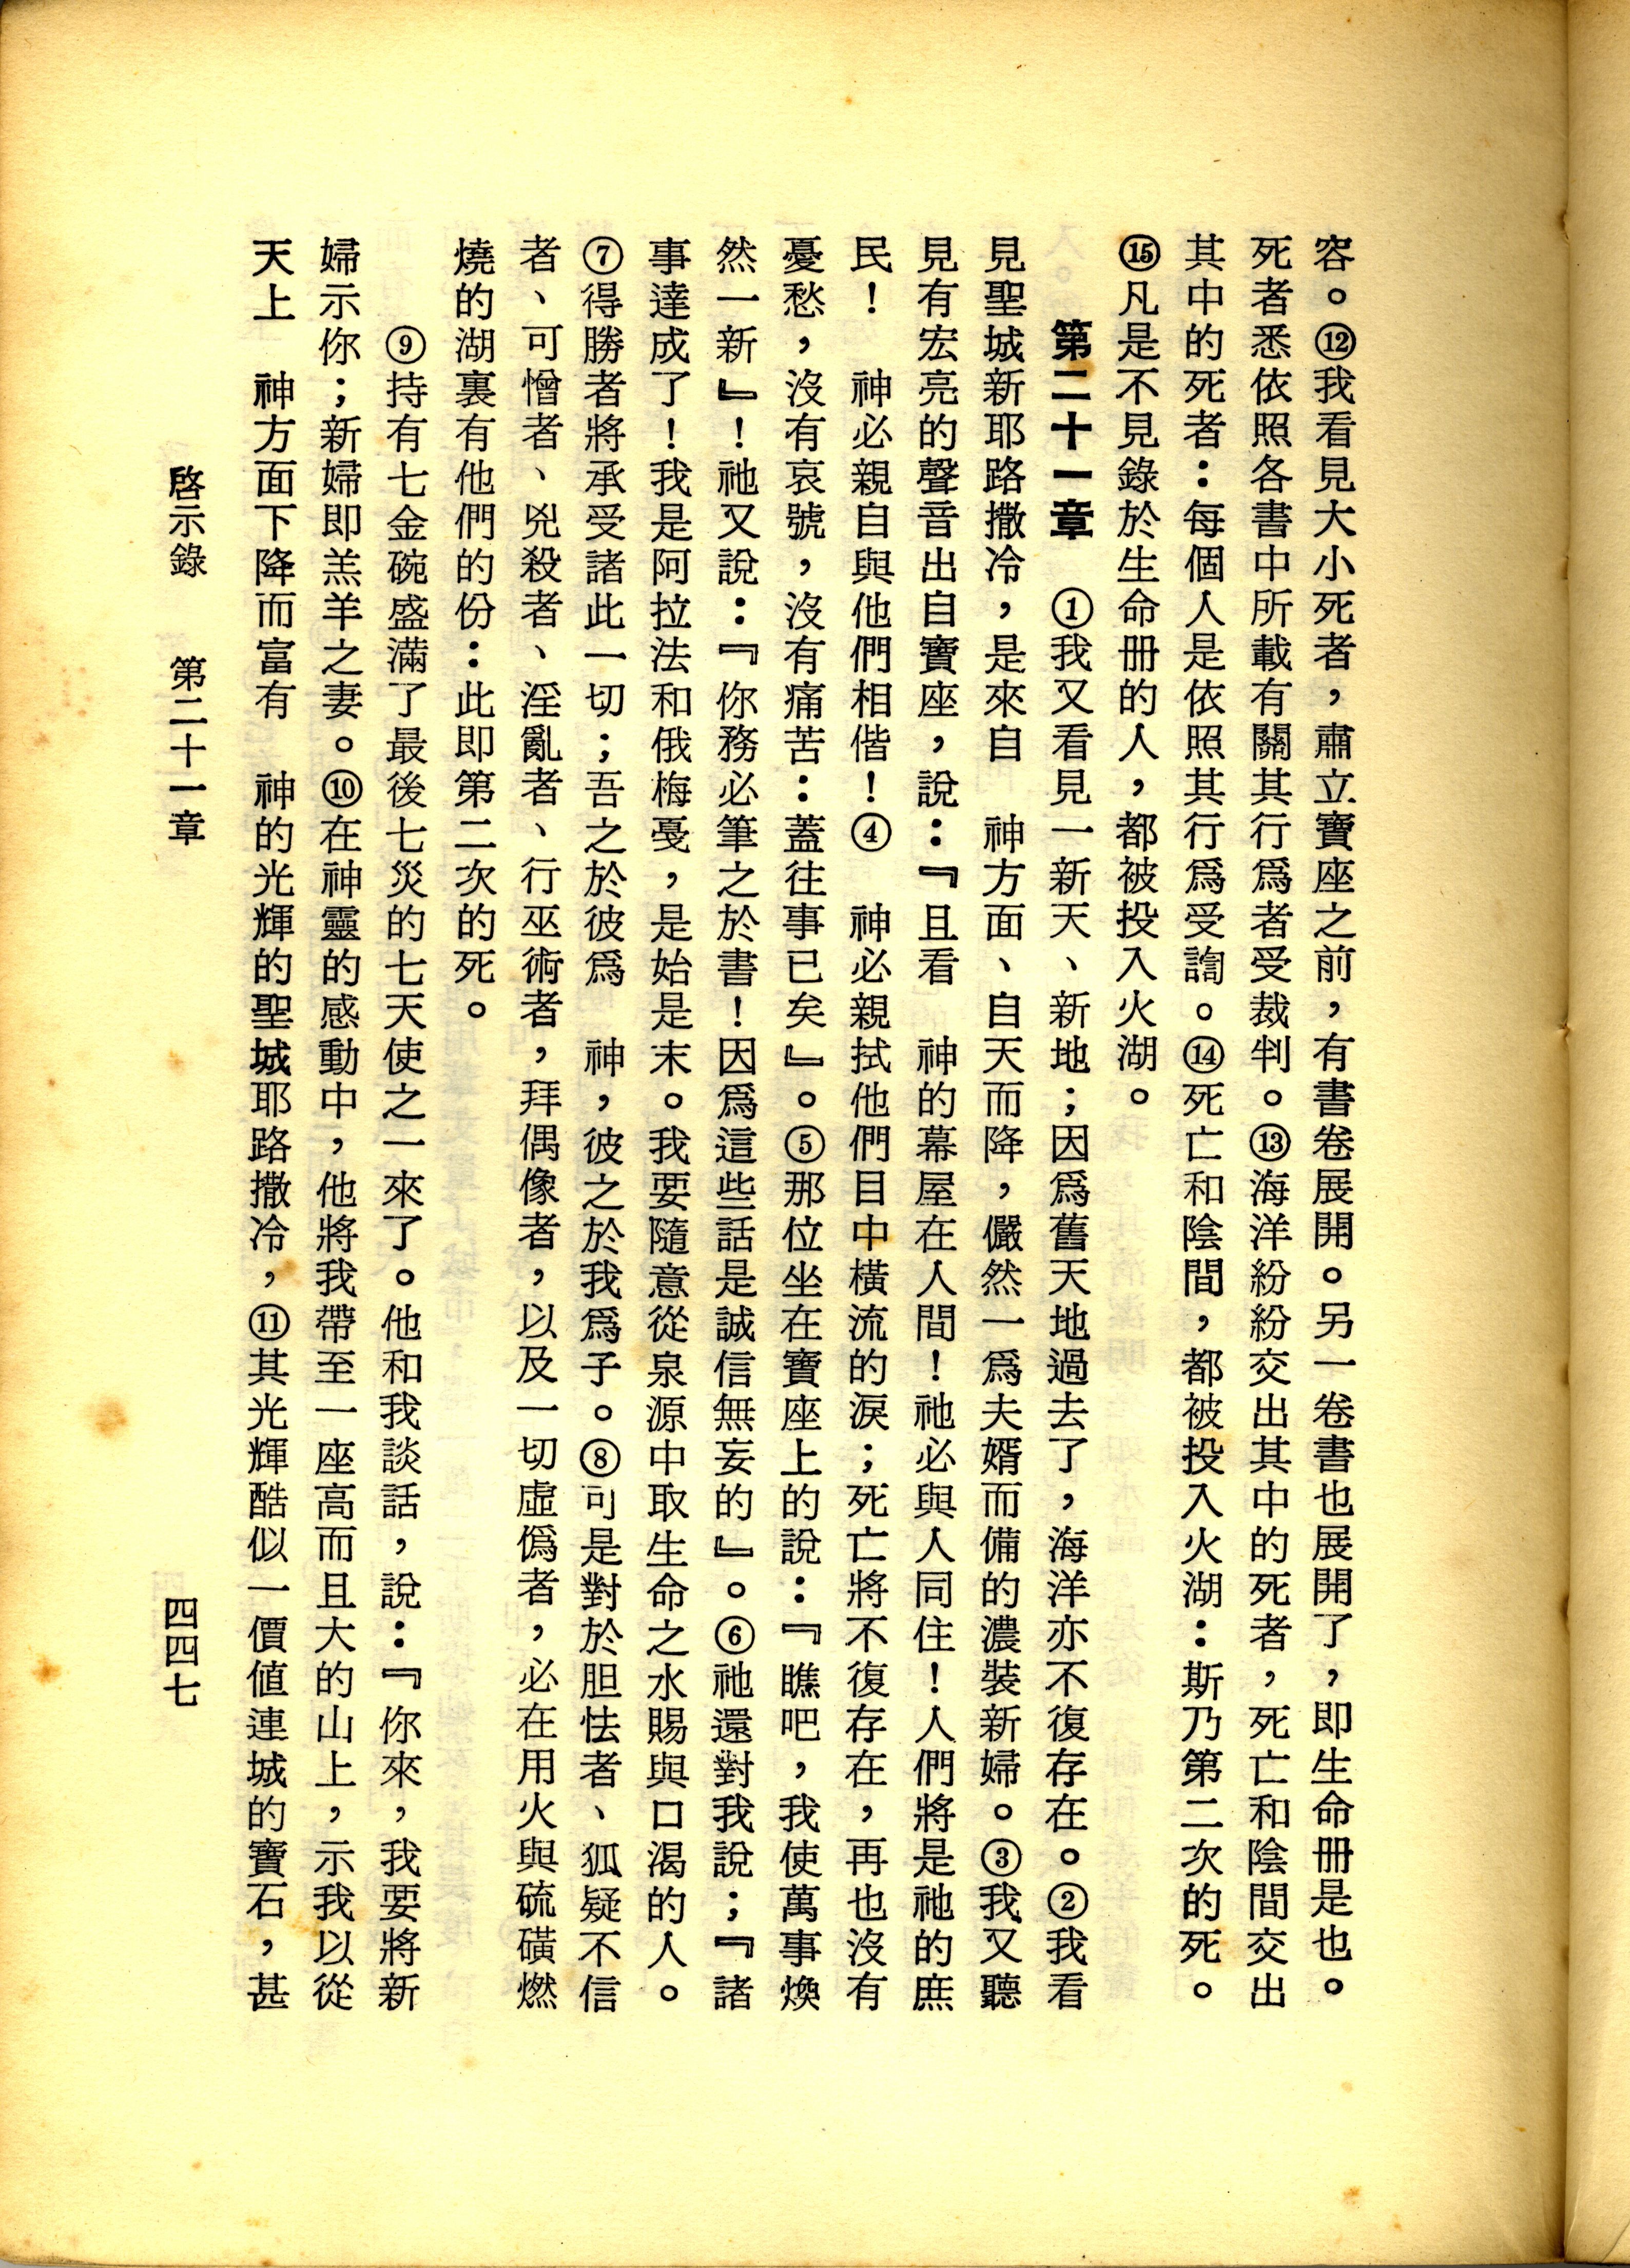 容。⑫我看見大小死者，肅立寶座之前，有書卷展開。另一卷書也展開了，即生命冊是也。
死者悉依照各書中所載有關其行爲者受裁判。⑬海洋紛紛交出其中的死者，死亡和陰間交出
其中的死者：每個人是依照其行爲受詢。⑭死亡和陰間，都被投入火湖：斯乃第二次的死。
⑮凡是不見錄於生命冊的人，都被投入火湖。
第二十一章　①我又看見一新天、新地；因爲舊天地過去了，海洋亦不復存在。②我看
見聖城新耶路撒冷，是來自　神方面、自天而降，儼然一爲夫婿而備的濃裝新婦。③我又聽
見有宏亮的聲音出自寶座，說：『且看　神的幕屋在人間！祂必與人同住！人們將是祂的庶
民！　神必親自與他們相偕！④　神必親拭他們目中橫流的淚；死亡將不復存在，再也沒有
憂愁，沒有哀號，沒有痛苦：蓋往事已矣』。⑤那位坐在寶座上的說：『瞧吧，我使萬事煥
然一新』！祂又說：『你務必筆之於書！因爲這些話是誠信無妄的』。⑥祂還對我說；『諸
事達成了！我是阿拉法和俄梅戛，是始是末。我要隨意從泉源中取生命之水賜與口渴的人。
⑦得勝者將承受諸此一切；吾之於彼爲　神，彼之於我爲子。⑧可是對於胆怯者、狐疑不信
者、可憎者、兇殺者、淫亂者、行巫術者，拜偶像者，以及一切虛僞者，必在用火與硫磺燃
燒的湖裏有他們的份：此即第二次的死。
⑨持有七金碗盛滿了最後七災的七天使之一來了。他和我談話，說：『你來，我要將新
婦示你；新婦即羔羊之妻。⑩在神靈的感動中，他將我帶至一座高而且大的山上，示我以從
天上　神方面下降而富有　神的光輝的聖城耶路撒冷，⑪其光輝酷似一價值連城的寶石，甚
啓示錄　第二十一章　四四七